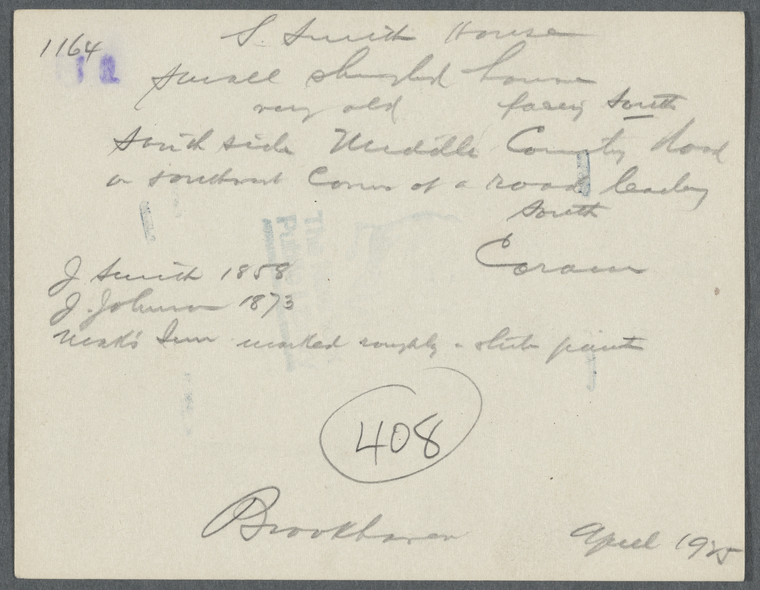 1164
S. Smith House
small shingled house
very old facing south
South side Middle Country Road
on southwest corner of a road leading
south
Coram
J Smith 1858
J. Johnson 1873
Inn marked roughly white paint
408
Brookhaven
April 1925